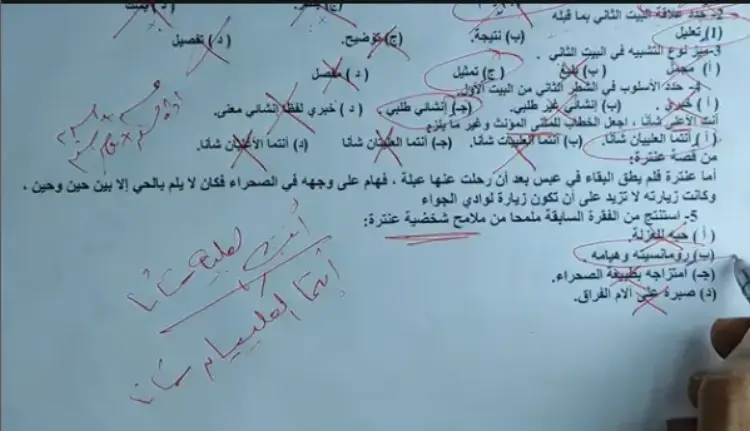 2- حدد علاقة البيت الثاني بما قبله
(أ) تعليل (ب) نتيجة. (ج) توضيح. (د) تفصيل
3- ميز نوع التشبيه في البيت الثاني .
(أ) مجمل (ب) بليغ (ج) تمثيل (د) مفصل
4- حدد الأسلوب في الشطر الثاني من البيت الأول.
(أ) خبري . (ب) إنشائي غير طلبي. (جـ) إنشائي طلبي . (د) خبري لفظا إنشائي معنى.
أنت الأعلى شأنا ، اجعل الخطاب للمثنى المؤنث وغير ما يلزم
(أ) أنتما العلييان شأنا. (ب) أنتما العليتان شأنا. (جـ) أنتما العلتان شأنا (د) أنتما الأعليان شأنا.
من قصة عنترة:
أما عنترة فلم يطق البقاء في عبس بعد أن رحلت عنها عبلة ، فهام على وجهه في الصحراء فكان لا يلم بالحي إلا بين حين وحين ،
وكانت زيارته لا تزيد على أن تكون زيارة لوادي الجواء
5- استنتج من الفقرة السابقة ملمحا من ملامح شخصية عنترة:
(أ) حبه للعزلة.
(ب) رومانسيته وهيامه .
(جـ) امتزاجه بطبيعة الصحراء.
(د) صبره على آلام الفراق.
أنتما العلييان شأنا